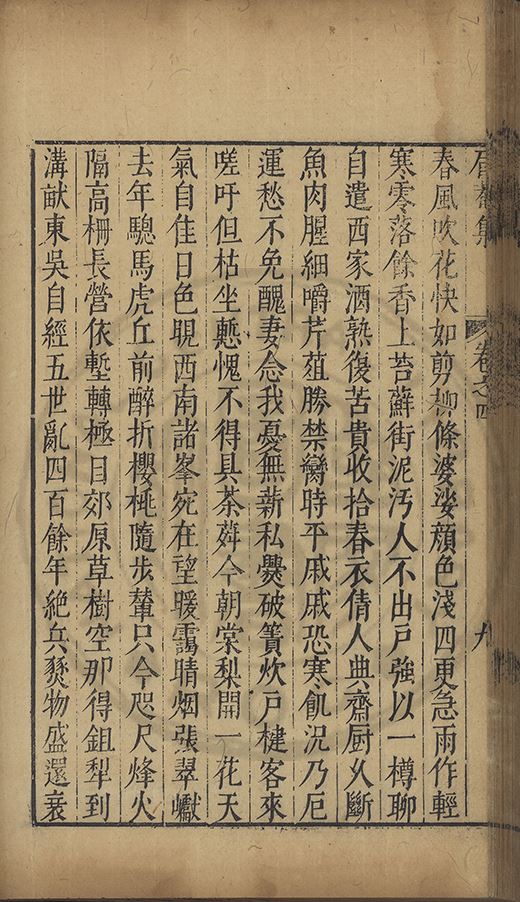 眉菴集 卷之四 九
春風吹花快如剪柳條婆娑顔色淺四更急雨作輕
寒零落餘香上苔蘚街泥汚人不出戸強以一樽聊
自遣西家酒熟復苦貴收拾春衣倩人典齋厨乆斷
魚肉腥細嚼芹菹勝禁臠時平戚戚恐寒飢況乃厄
運愁不免醜妻念我憂無薪私爨破簀炊戸楗客來
嗟吁但枯坐慙愧不得具茶荈今朝棠梨開一花天
氣自佳日色晛西南諸峯宛在望暖靄晴烟張翠巘
去年驄馬虎丘前醉折櫻桃隨步輦只今咫尺烽火
隔高柵長營依塹轉極目郊原草樹空那得鉏犁到
溝畎東吳自經五世亂四百餘年絶兵燹物盛還衰